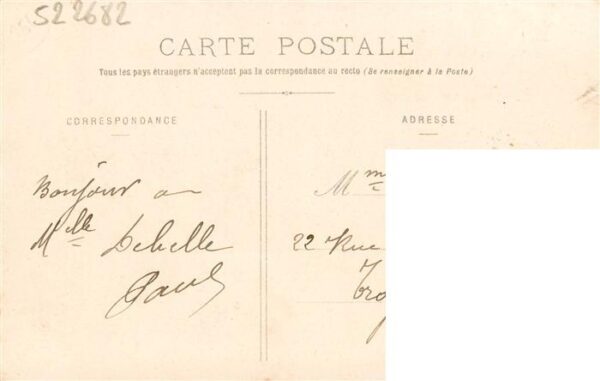 522682
CARTE POSTALE
Tous les pays étrangers n'acceptent pas la correspondance au recto (Se renseigner à la Poste)
CORRESPONDANCE
ADRESSE
Bonjour a
Mlle Debelle
Paul
Mme
22 Rue